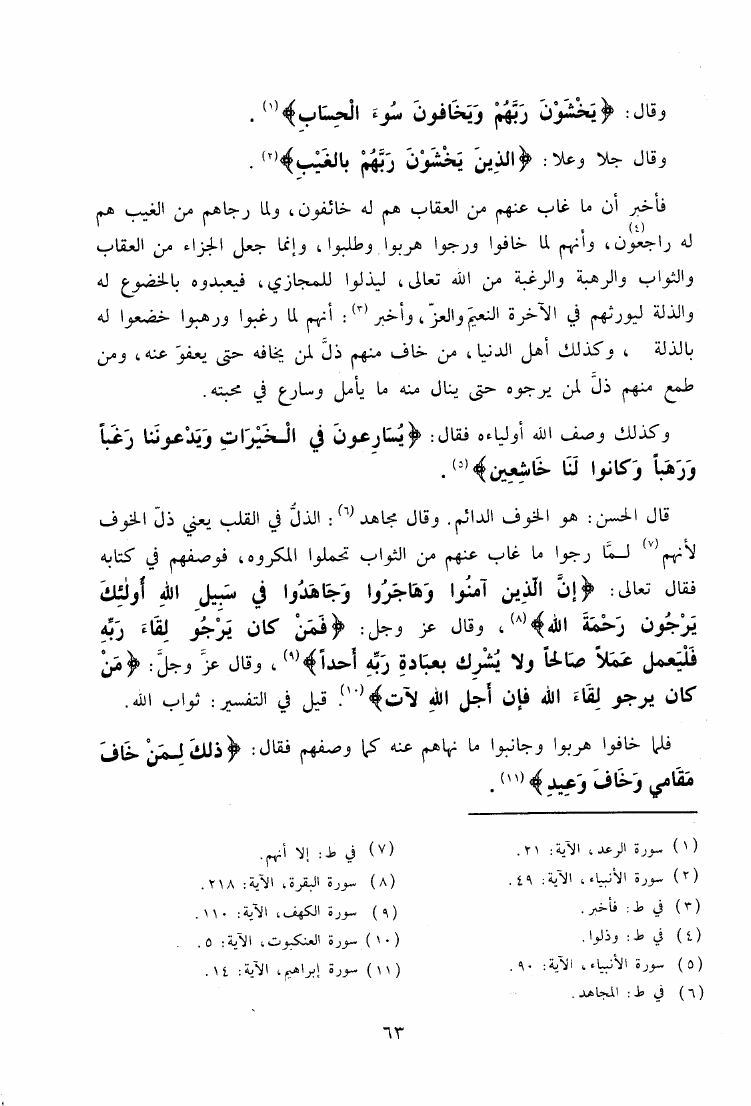 وقال: ﴿يَخْشَوْنَ رَبَّهُمْ وَيَخَافونَ سُوءَ الْحِسَابِ﴾(١) .
وقال جلا وعلا: ﴿الذِينَ يَخْشَوْنَ رَبَّهُمْ بالغَيْبِ﴾(٢) .
فأخبر أن ما غاب عنهم من العقاب هم له خائفون، ولما رجاهم من الغيب هم
له راجعون(٤)، وأنهم لما خافوا ورجوا هربوا وطلبوا، وإنما جعل الجزاء من العقاب
والثواب والرهبة والرغبة من الله تعالى، ليذلوا للمجازي، فيعبدوه بالخضوع له
والذلة ليورثهم في الآخرة النعيمَ والعزّ، وأخبر(٣): أنهم لما رغبوا ورهبوا خضعوا له
بالذلة ، وكذلك أهل الدنيا، من خاف منهم ذلَّ لمن يخافه حتى يعفوَ عنه، ومن
طمع منهم ذلَّ لمن يرجوه حتى ينال منه ما يأمل وسارع في محبته.
وكذلك وصف الله أولياءه فقال: ﴿يُسَارِعونَ في الْـخَيْرَاتِ وَيَدْعونَنا رَغَباً
وَرَهَباً وَكانوا لَنَا خَاشِعِين﴾(٥).
قال الحسن: هو الخوف الدائم. وقال مجاهد(٦): الذلُّ في القلب يعني ذلّ الخوف
لأنهم(٧) لـمَّا رجوا ما غاب عنهم من الثواب تحملوا المكروه، فوصفهم في كتابه
فقال تعالى: ﴿إنَّ الّذِين آمنُوا وَهَاجَرُوا وَجَاهَدُوا في سَبِيلِ اللهِ أُولٰئِكَ
يَرْجُون رَحْمَةَ الله﴾(٨)، وقال عز وجل: ﴿فَمَنْ كان يَرْجُو لِقَاءَ رَبِّهِ
فَلْيَعمل عَمَلاً صَالحاً ولا يُشْرِك بعبادةِ رَبِّهِ أحداً﴾(٩)، وقال عزَّ وجلَّ: ﴿مَنْ
كان يرجو لِقَاءَ الله فإن أَجل اللهِ لآت﴾(١٠). قيل في التفسير: ثواب الله.
فلما خافوا هربوا وجانبوا ما نهاهم عنه كما وصفهم فقال: ﴿ذلكَ لِـمَنْ خَافَ
مَقَامي وَخَافَ وَعِيدِ﴾(١١).
(١) سورة الرعد، الآية: ٢١.
(٢) سورة الأنبياء، الآية: ٤٩.
(٣) في ط: فأخبر.
(٤) في ط: وذلوا.
(٥) سورة الأنبياء، الآية: ٩٠.
(٦) في ط: المجاهد.
(٧) في ط: إلا أنهم.
(٨) سورة البقرة، الآية: ٢١٨.
(٩) سورة الكهف، الآية: ١١٠.
(١٠) سورة العنكبوت، الآية: ٥.
(١١) سورة إبراهيم، الآية: ١٤.
٦٣